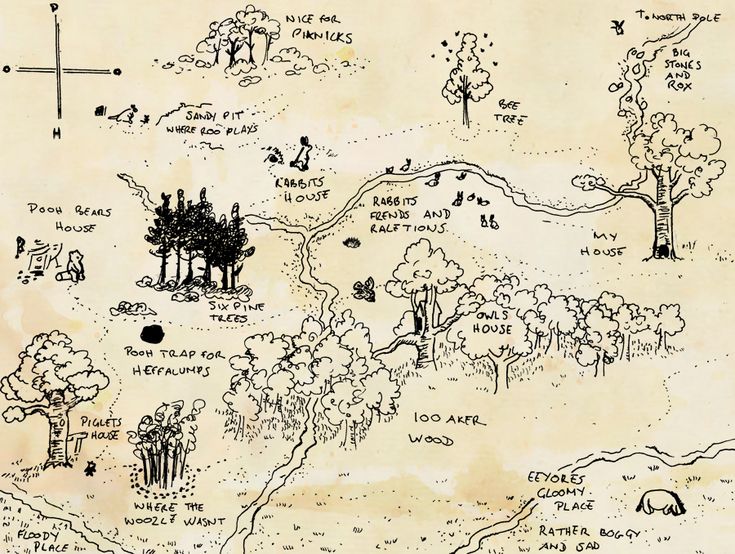 P
O O
H
NICE FOR
PIKNICKS
To NORTH POLE
BIG
STONES
AND
ROX
BEE
TREE
SANDY PIT
WHERE ROO PLAYS
RABBITS
HOUSE
RABBITS
FRENDS AND
RALETIONS
MY
HOUSE
POOH BEARS
HOUSE
SIX PINE
TREES
OWLS
HOUSE
POOH TRAP FOR
HEFFALUMPS
PIGLETS
HOUSE
100 AKER
WOOD
WHERE THE
WOOZLE WASNT
FLOODY
PLACE
EEYORES
GLOOMY
PLACE
RATHER BOGGY
AND SAD